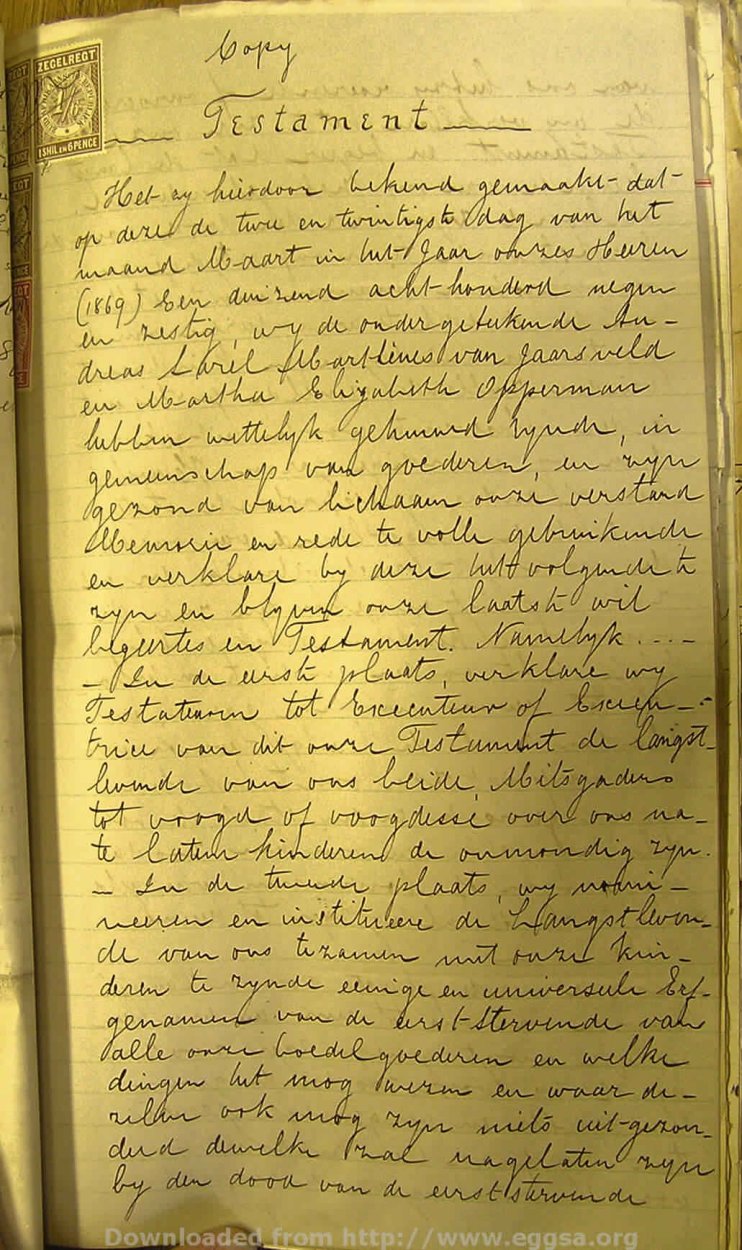 Copy
Testament
ZEGELREGT
1 SHIL EN 6 PENCE
Het zy hierdoor bekend gemaakt dat
op deze de twee en twintigste dag van het
maand Maart in het Jaar onzes Heeren
(1869) Een duizend acht honderd negen
en zestig, wy de ondergetekende An-
dreas Carel Marthinus van Jaarsveld
en Martha Elizabeth Opperman
hebben wettelyk gehuwd zynde, in
gemeenschap van goederen, en zyn
gezond van lichaam onze verstand
Memorie en rede te volle gebruikende
en verklare by deze het volgende te
zyn en blyven onze laatste wil
begeertes en Testament. Namelyk ...-
- In de eerste plaats, verklare wy
Testateuren tot Executeur of Execu-
trice van dit onze Testament de langst-
levende van ons beide, Mitsgaders
tot voogd of voogdesse over ons na-
te laten kinderen de onmondig zyn.
- In de tweede plaats, wy nomi-
neeren en institueere de Langstleven-
de van ons tezamen met onze kin-
deren te zynde eenige en universeele Erf-
genamen van de eerst-stervende van
alle onze boedel goederen en welke
dingen het mog wezen en waar de-
zelve ook mog zyn niets uit-gezon-
derd dewelke zal nagelaten zyn
by den dood van de eerst stervende
Downloaded from http://www.eggsa.org